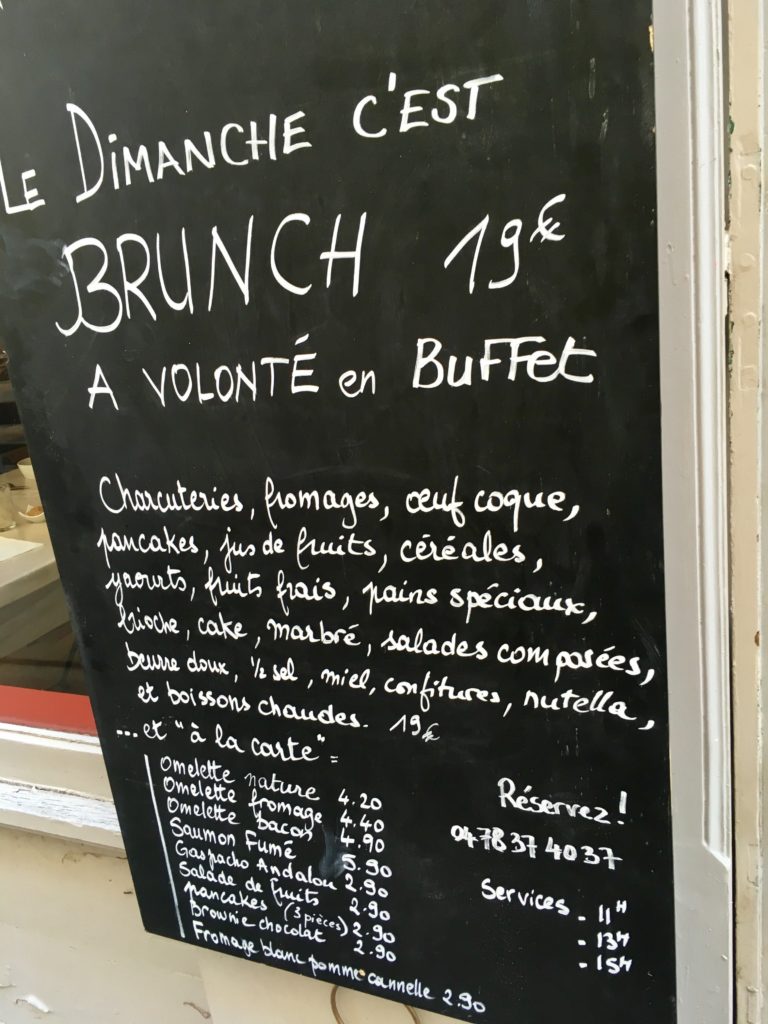 Le Dimanche c'est
BRUNCH 19€
A VOLONTÉ en Buffet
Charcuteries, fromages, œuf coque,
pancakes, jus de fruits, céréales,
yaourts, fruits frais, pains spéciaux,
brioche, cake, marbré, salades composées,
beurre doux, ½ sel, miel, confitures, nutella,
et boissons chaudes. 19€
...et "à la carte" =
Omelette nature 4.20
Omelette fromage 4.40
Omelette bacon 4.90
Saumon Fumé 5.90
Gaspacho Andalou 2.90
Salade de fruits 2.90
pancakes (3 pièces) 2.90
Brownie chocolat 2.90
Fromage blanc pomme cannelle 2.90
Réservez!
04 78 37 40 37
Services - 11H
- 13H
- 15H